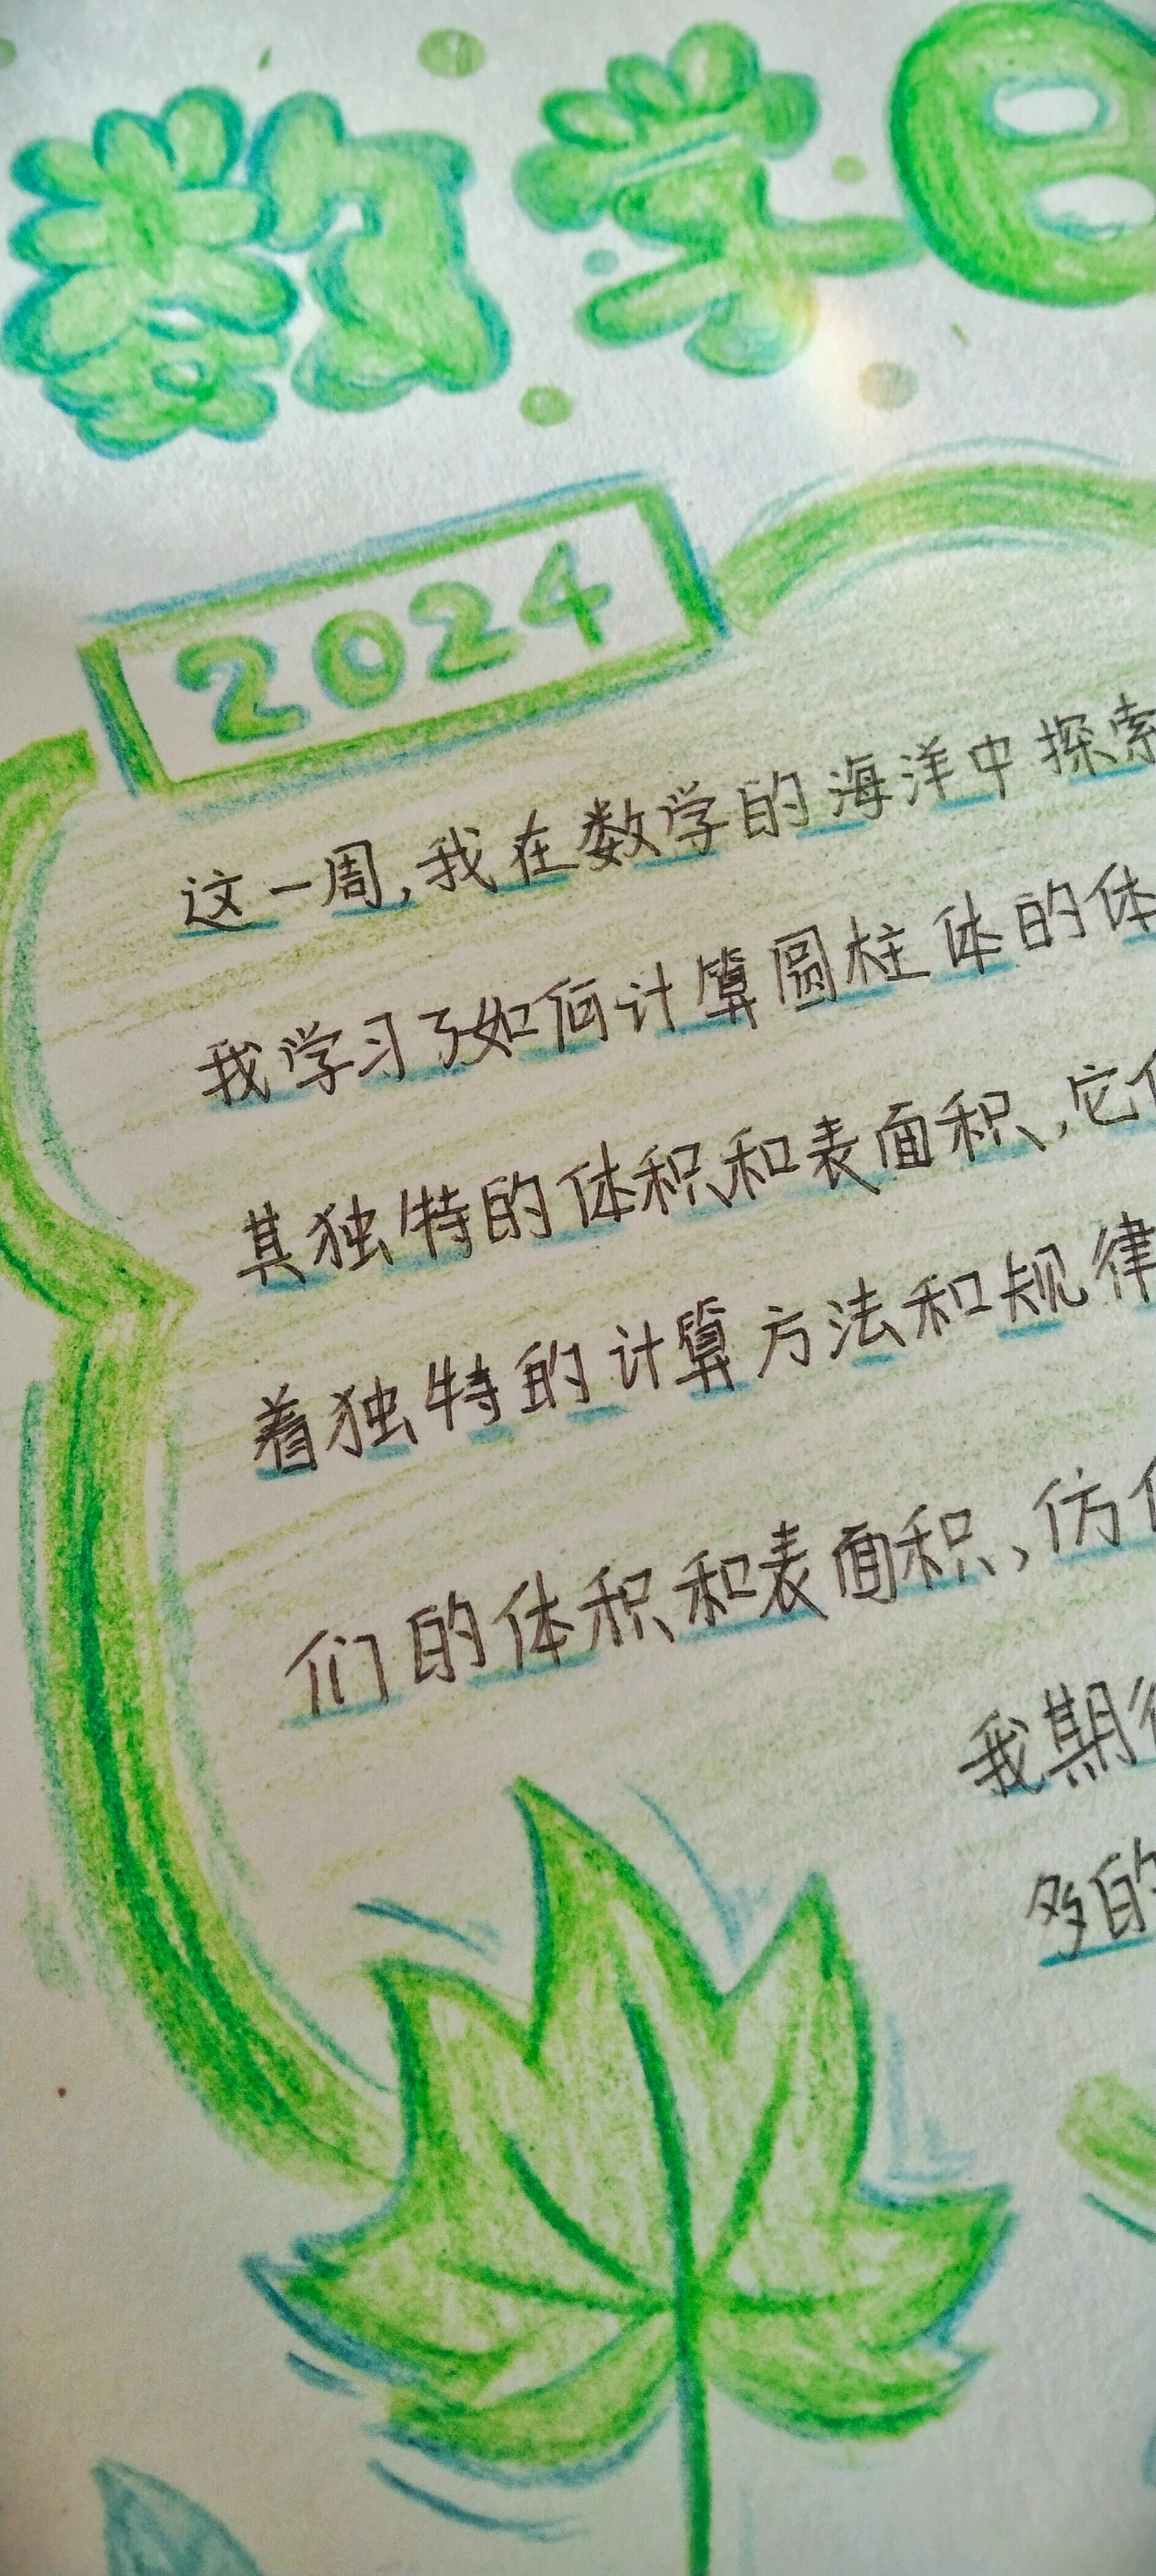 数学日
2024
这一周,我在数学的海洋中探索
我学习了如何计算圆柱体的体
其独特的体积和表面积,它
着独特的计算方法和规律
们的体积和表面积,仿
我期
多的